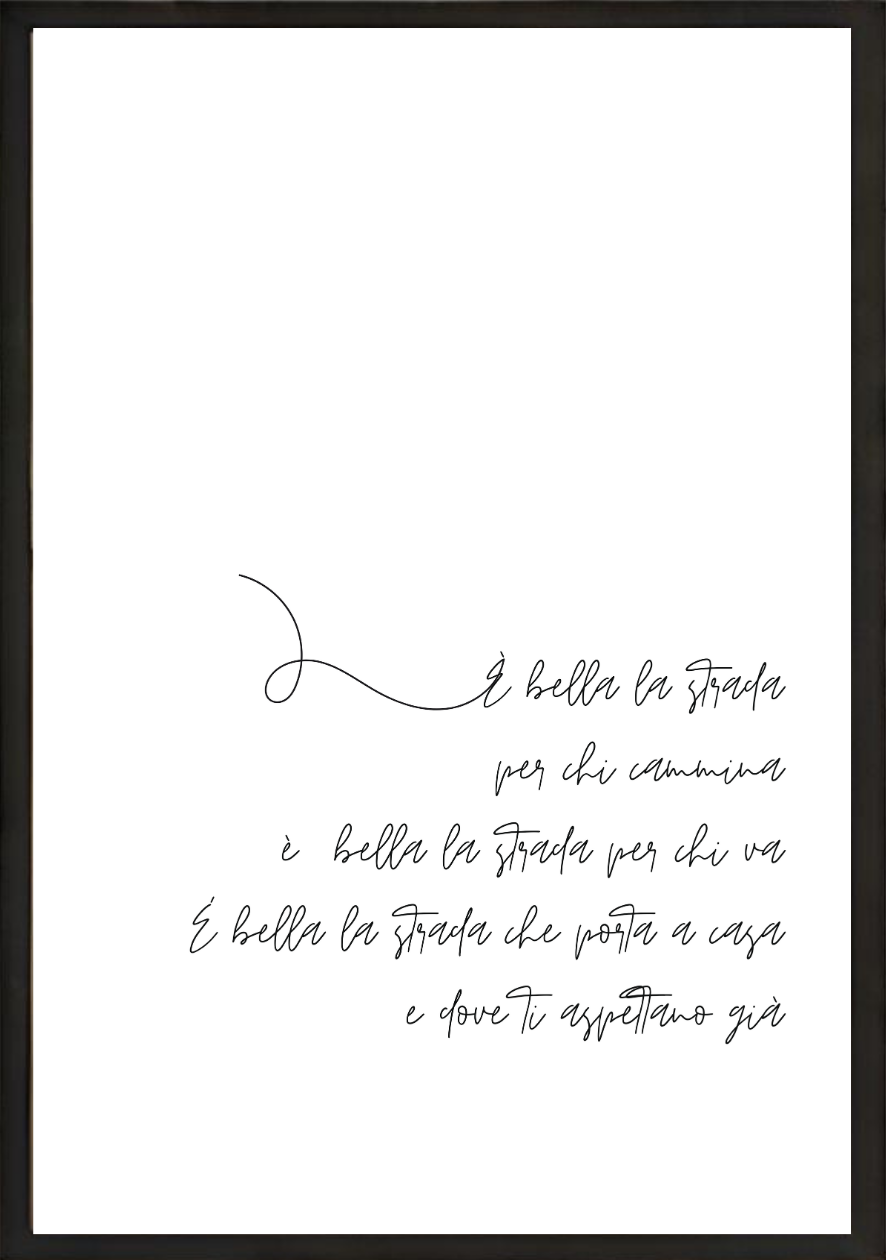 È bella la strada
per chi cammina
è bella la strada per chi va
É bella la strada che porta a casa
e dove ti aspettano già